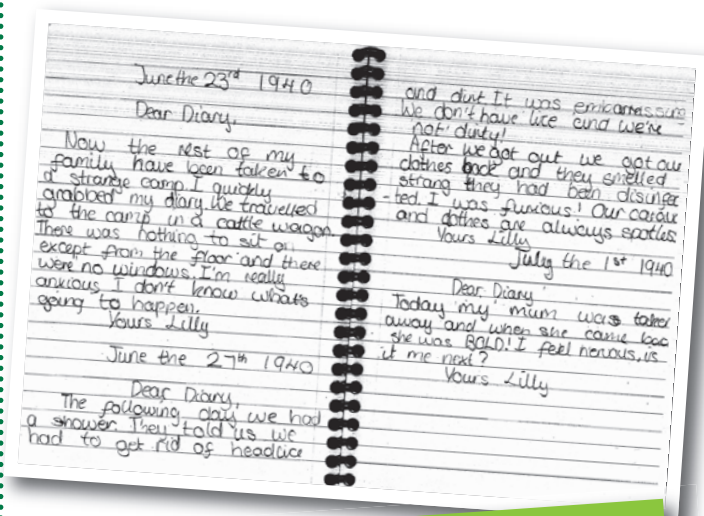 June the 23rd 1940
Dear Diary,
Now the rest of my
family have been taken to
a strange camp. I quickly
grabbed my diary. We travelled
to the camp in a cattle wagon.
There was nothing to sit on
except from the floor and there
were no windows. I'm really
anxious I don't know what's
going to happen.
Yours Lilly
June the 27th 1940
Dear Diary,
The following day we had
a shower. They told us we
had to get rid of headlice
and dirt It was embarrassing
We don't have lice and we're
not dirty!
After we got out we got our
clothes back and they smelled
strang they had been disinfec
-ted. I was furious! Our
and clothes are always spotles
Yours Lilly
July the 1st 1940
Dear Diary
Today my mum was taken
away and when she came bac
she was BOLD! I feel nervous, is
it me next?
Yours Lilly